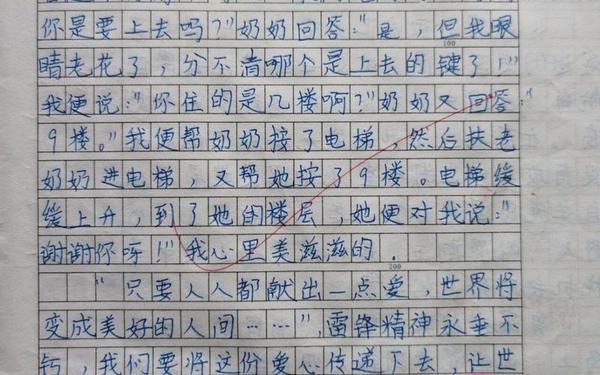 你是要上去吗?”奶奶回答:“是,但我眼
100
睛老花了,分不清哪个是上去的键了!”
我便说:“你住的是几楼啊?”奶奶又回答:“
9楼。”我便帮奶奶按了电梯,然后扶老
奶奶进电梯,又帮她按了9楼。电梯缓
缓上升,到了她的楼层,她便对我说:“
谢谢你呀!”我心里美滋滋的.
200
“只要人人都献出一点爱,世界将
变成美好的人间……”,雷锋精神永垂不
朽,我们要将这份爱心传递下去,让世